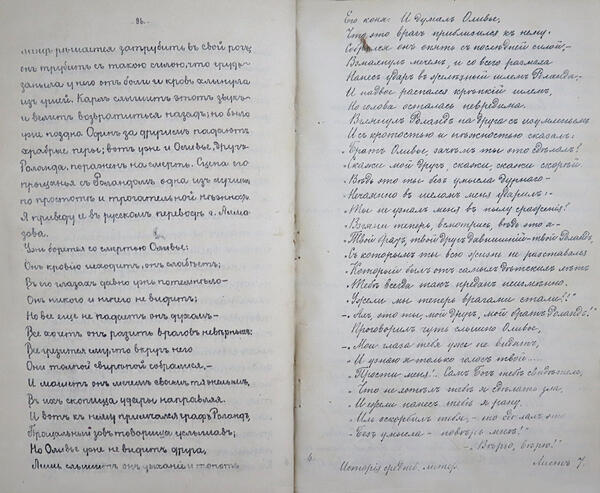 86.
лишь рѣшается затрубить въ свой рогъ;
онъ трубитъ съ такою силою, что грудь
заныла у него отъ боли и кровь хлынула
изъ ушей. Карлъ слышитъ этотъ звукъ
и велитъ возвратиться назадъ, но было
уже поздно. Одинъ за другимъ падаютъ
храбрые перы; вотъ уже и Оливье, другъ
Роланда, пораженъ на смерть. Сцена его
прощанья съ Роландомъ одна изъ лучшихъ
по простотѣ и трогательной нѣжности.
Я приведу ее въ русскомъ переводѣ г. Алма-
зова.
Уже борется со смертью Оливье:
Онъ кровью исходитъ, онъ слабѣетъ;
Въ его глазахъ давно ужъ потемнѣло
Онъ никого и ничего не видитъ;
Но все еще не падаетъ онъ духомъ—
Все хочетъ онъ разить враговъ невѣрныхъ:
Все грезится ему, что вкругъ него
Они толпой свирѣпой собрались,—
И машетъ онъ мечемъ своимъ тяжелымъ,
Въ ихъ скопища удары направляя.
И вотъ къ нему примчался графъ Роландъ,
Прощальный зовъ товарища услышавъ;
Но Оливье уже не видитъ друга,
Лишь слышитъ онъ дыханіе и топотъ
Его коня: И думалъ Оливье,
Что это врагъ приблизился къ нему.
Собрался онъ опять съ послѣдней силой,—
Взмахнулъ мечемъ, и со всего размаха
Нанесъ ударъ въ желѣзный шлемъ Роланда,—
И надвое распался крѣпкій шлемъ,
Но голова осталась невредима.
Взглянулъ Роландъ на друга съ изумленьемъ
И съ кротостью и нѣжностью сказалъ:
„Братъ Оливье, зачѣмъ ты это сдѣлалъ!
„Скажи мой другъ, скажи, скажи скорѣй
„Вѣдь это ты безъ умысла дурнаго—
„Нечаянно въ шеломъ меня ударилъ:—
„Ты не узналъ меня въ пылу сраженья!
„Взгляни теперь, всмотрись, вѣдь это я—
„Твой братъ, твой другъ давнишній—твой Роландъ,
„Съ которымъ ты всю жизнь не разставался
„Который былъ отъ самыхъ дѣтскихъ лѣтъ
„Тебѣ всегда такъ преданъ неизмѣнно.
„Ужели мы теперь врагами стали?!"
„Ахъ, это ты, мой другъ, мой братъ Роландъ!"
Проговорилъ чуть слышно Оливье,
„Мои глаза тебя уже не видятъ,
„И узнаю я только голосъ твой....
„Прости меня!.. Самъ Богъ тебѣ свидѣтель,
„Что не хотѣлъ тебѣ я сдѣлать зла,
„И ежели нанесъ тебѣ я рану,
„Иль оскорбилъ тебя,— то сдѣлалъ это
„Безъ умысла — повѣрь мнѣ!"
— „Вѣрю, вѣрю!"
Исторія среднев. литер.
Листъ 7.